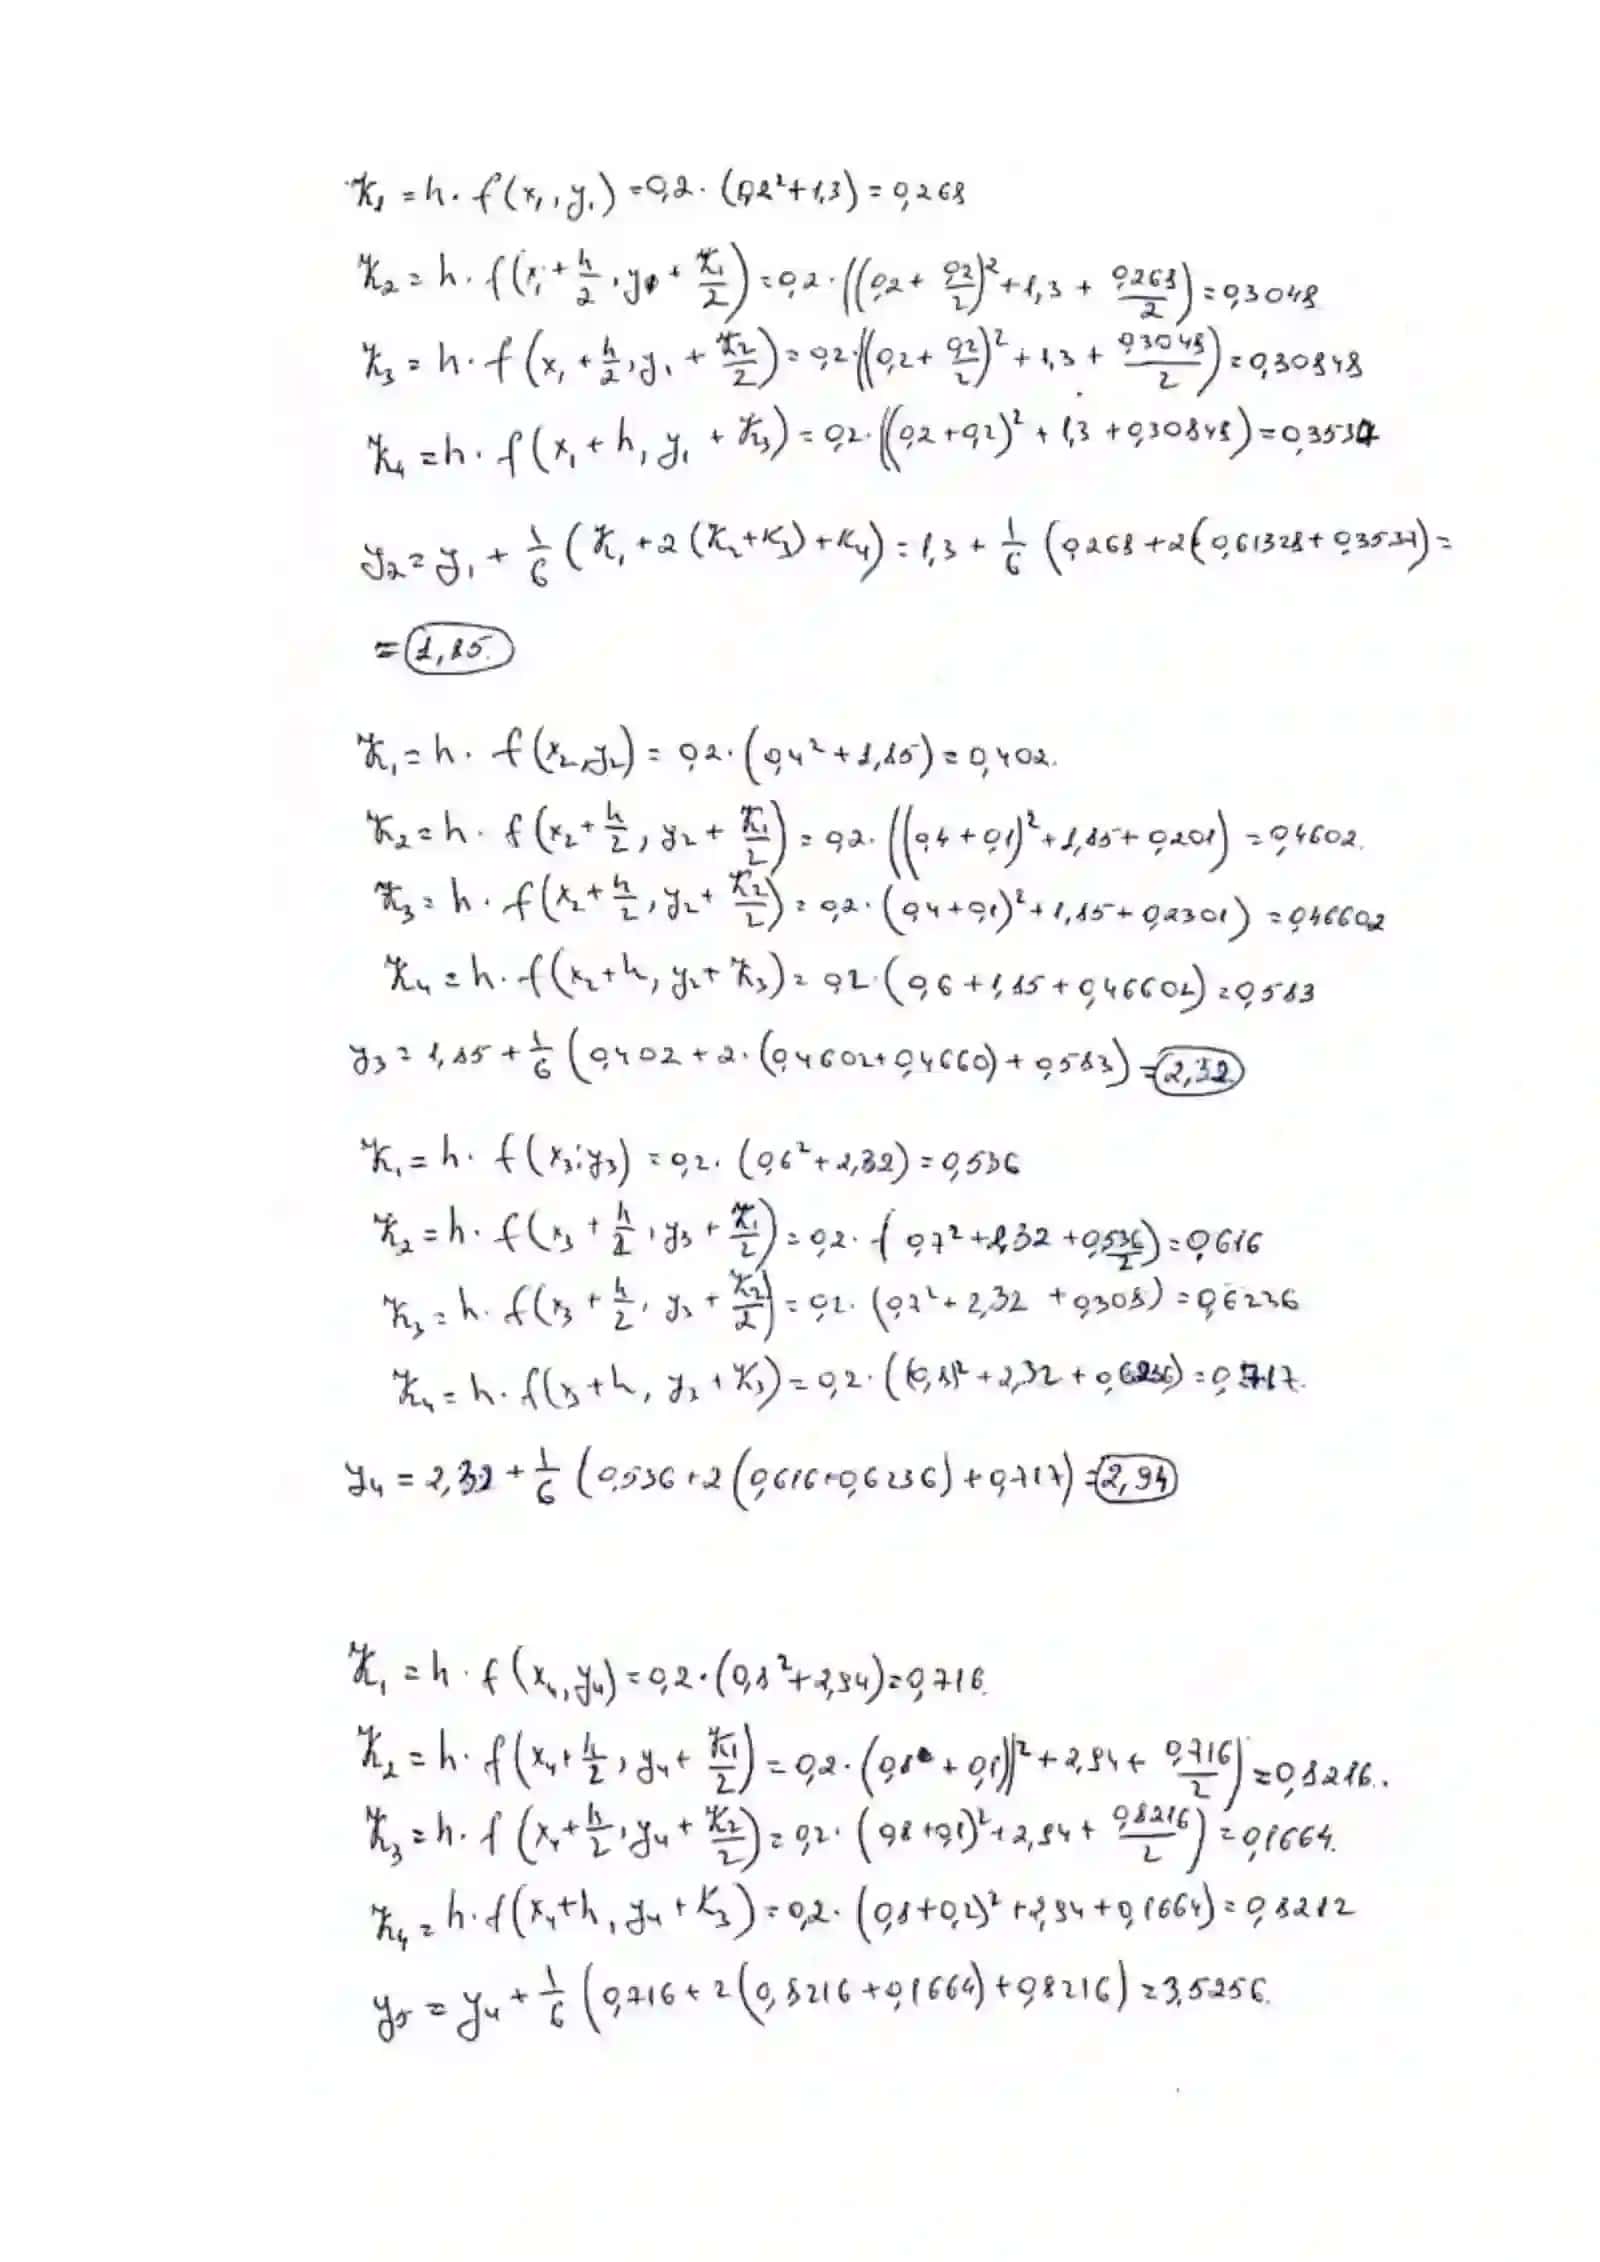 K₁ = h · f(x₁, y₁) = 0,2 · (0,2² + 1,3) = 0,268
K₂ = h · f(x₁ + h/2, y₁ + K₁/2) = 0,2 · ((0,2 + 0,2/2)² + 1,3 + 0,268/2) = 0,3048
K₃ = h · f(x₁ + h/2, y₁ + K₂/2) = 0,2 · ((0,2 + 0,2/2)² + 1,3 + 0,3048/2) = 0,30848
K₄ = h · f(x₁ + h, y₁ + K₃) = 0,2 · ((0,2 + 0,2)² + 1,3 + 0,30848) = 0,3537
y₂ = y₁ + 1/6 (K₁ + 2(K₂ + K₃) + K₄) = 1,3 + 1/6 (0,268 + 2(0,61328 + 0,3537) =
= 1,85.
K₁ = h · f(x₂, y₂) = 0,2 · (0,4² + 1,85) = 0,402.
K₂ = h · f(x₂ + h/2, y₂ + K₁/2) = 0,2 · ((0,4 + 0,1)² + 1,85 + 0,201) = 0,4602.
K₃ = h · f(x₂ + h/2, y₂ + K₂/2) = 0,2 · (0,4 + 0,1)² + 1,85 + 0,2301) = 0,46602
K₄ = h · f(x₂ + h, y₂ + K₃) = 0,2 · (0,6 + 1,85 + 0,46602) = 0,583
y₃ = 1,85 + 1/6 (0,402 + 2 · (0,4602 + 0,4660) + 0,583) = 2,32
K₁ = h · f(x₃; y₃) = 0,2 · (0,6² + 2,32) = 0,536
K₂ = h · f(x₃ + h/2, y₃ + K₁/2) = 0,2 · (0,7² + 2,32 + 0,536/2) = 0,616
K₃ = h · f(x₃ + h/2, y₃ + K₂/2) = 0,2 · (0,7² + 2,32 + 0,308) = 0,6236
K₄ = h · f(x₃ + h, y₃ + K₃) = 0,2 · ((0,8)² + 2,32 + 0,6236) = 0,717.
y₄ = 2,32 + 1/6 (0,536 + 2(0,616 + 0,6236) + 0,717) = 2,94
K₁ = h · f(x₄, y₄) = 0,2 · (0,8² + 2,94) = 0,716.
K₂ = h · f(x₄ + h/2, y₄ + K₁/2) = 0,2 · (0,8 + 0,1))² + 2,94 + 0,716/2) = 0,8216.
K₃ = h · f(x₄ + h/2, y₄ + K₂/2) = 0,2 · (0,8 + 0,1)² + 2,94 + 0,8216/2) = 0,1664.
K₄ = h · f(x₄ + h, y₄ + K₃) = 0,2 · (0,8 + 0,2)² + 2,94 + 0,1664) = 0,8212
y₅ = y₄ + 1/6 (0,716 + 2(0,8216 + 0,1664) + 0,8216) = 3,5256.